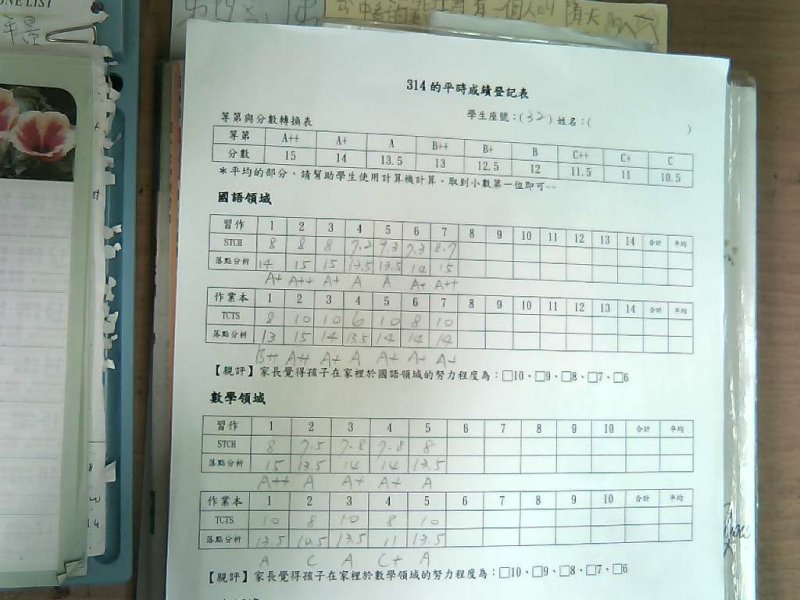 ONE LIST
314的平時成績登記表
學生座號：(32) 姓名：( )
等第與分數轉換表
等第 A++ A+ A B++ B+ B C++ C+ C
分數 15 14 13.5 13 12.5 12 11.5 11 10.5
*平均的部分，請幫助學生使用計算機計算。取到小數第一位即可~~
國語領域
習作 1 2 3 4 5 6 7 8 9 10 11 12 13 14 合計 平均
STCH 8 8 8 7.2 9.3 7.3 8.7
落點分析 14 15 15 13.5 13.5 14 15
A+ A++ A+ A A A+ A++
作業本 1 2 3 4 5 6 7 8 9 10 11 12 13 14 合計 平均
TCTS 8 10 10 6 10 8 10
落點分析 13 15 14 13.5 14 14 14
B++ A++ A+ A A+ A+ A+
【親評】家長覺得孩子在家裡於國語領域的努力程度為：□10、□9、□8、□7、□6
數學領域
習作 1 2 3 4 5 6 7 8 9 10 合計 平均
STCH 8 7.5 7.8 7.8 8
落點分析 15 13.5 14 14 13.5
A++ A A+ A+ A
作業本 1 2 3 4 5 6 7 8 9 10 合計 平均
TCTS 10 8 10 8 10
落點分析 13.5 10.5 13.5 11 13.5
A C A C+ A
【親評】家長覺得孩子在家裡於數學領域的努力程度為：□10、□9、□8、□7、□6